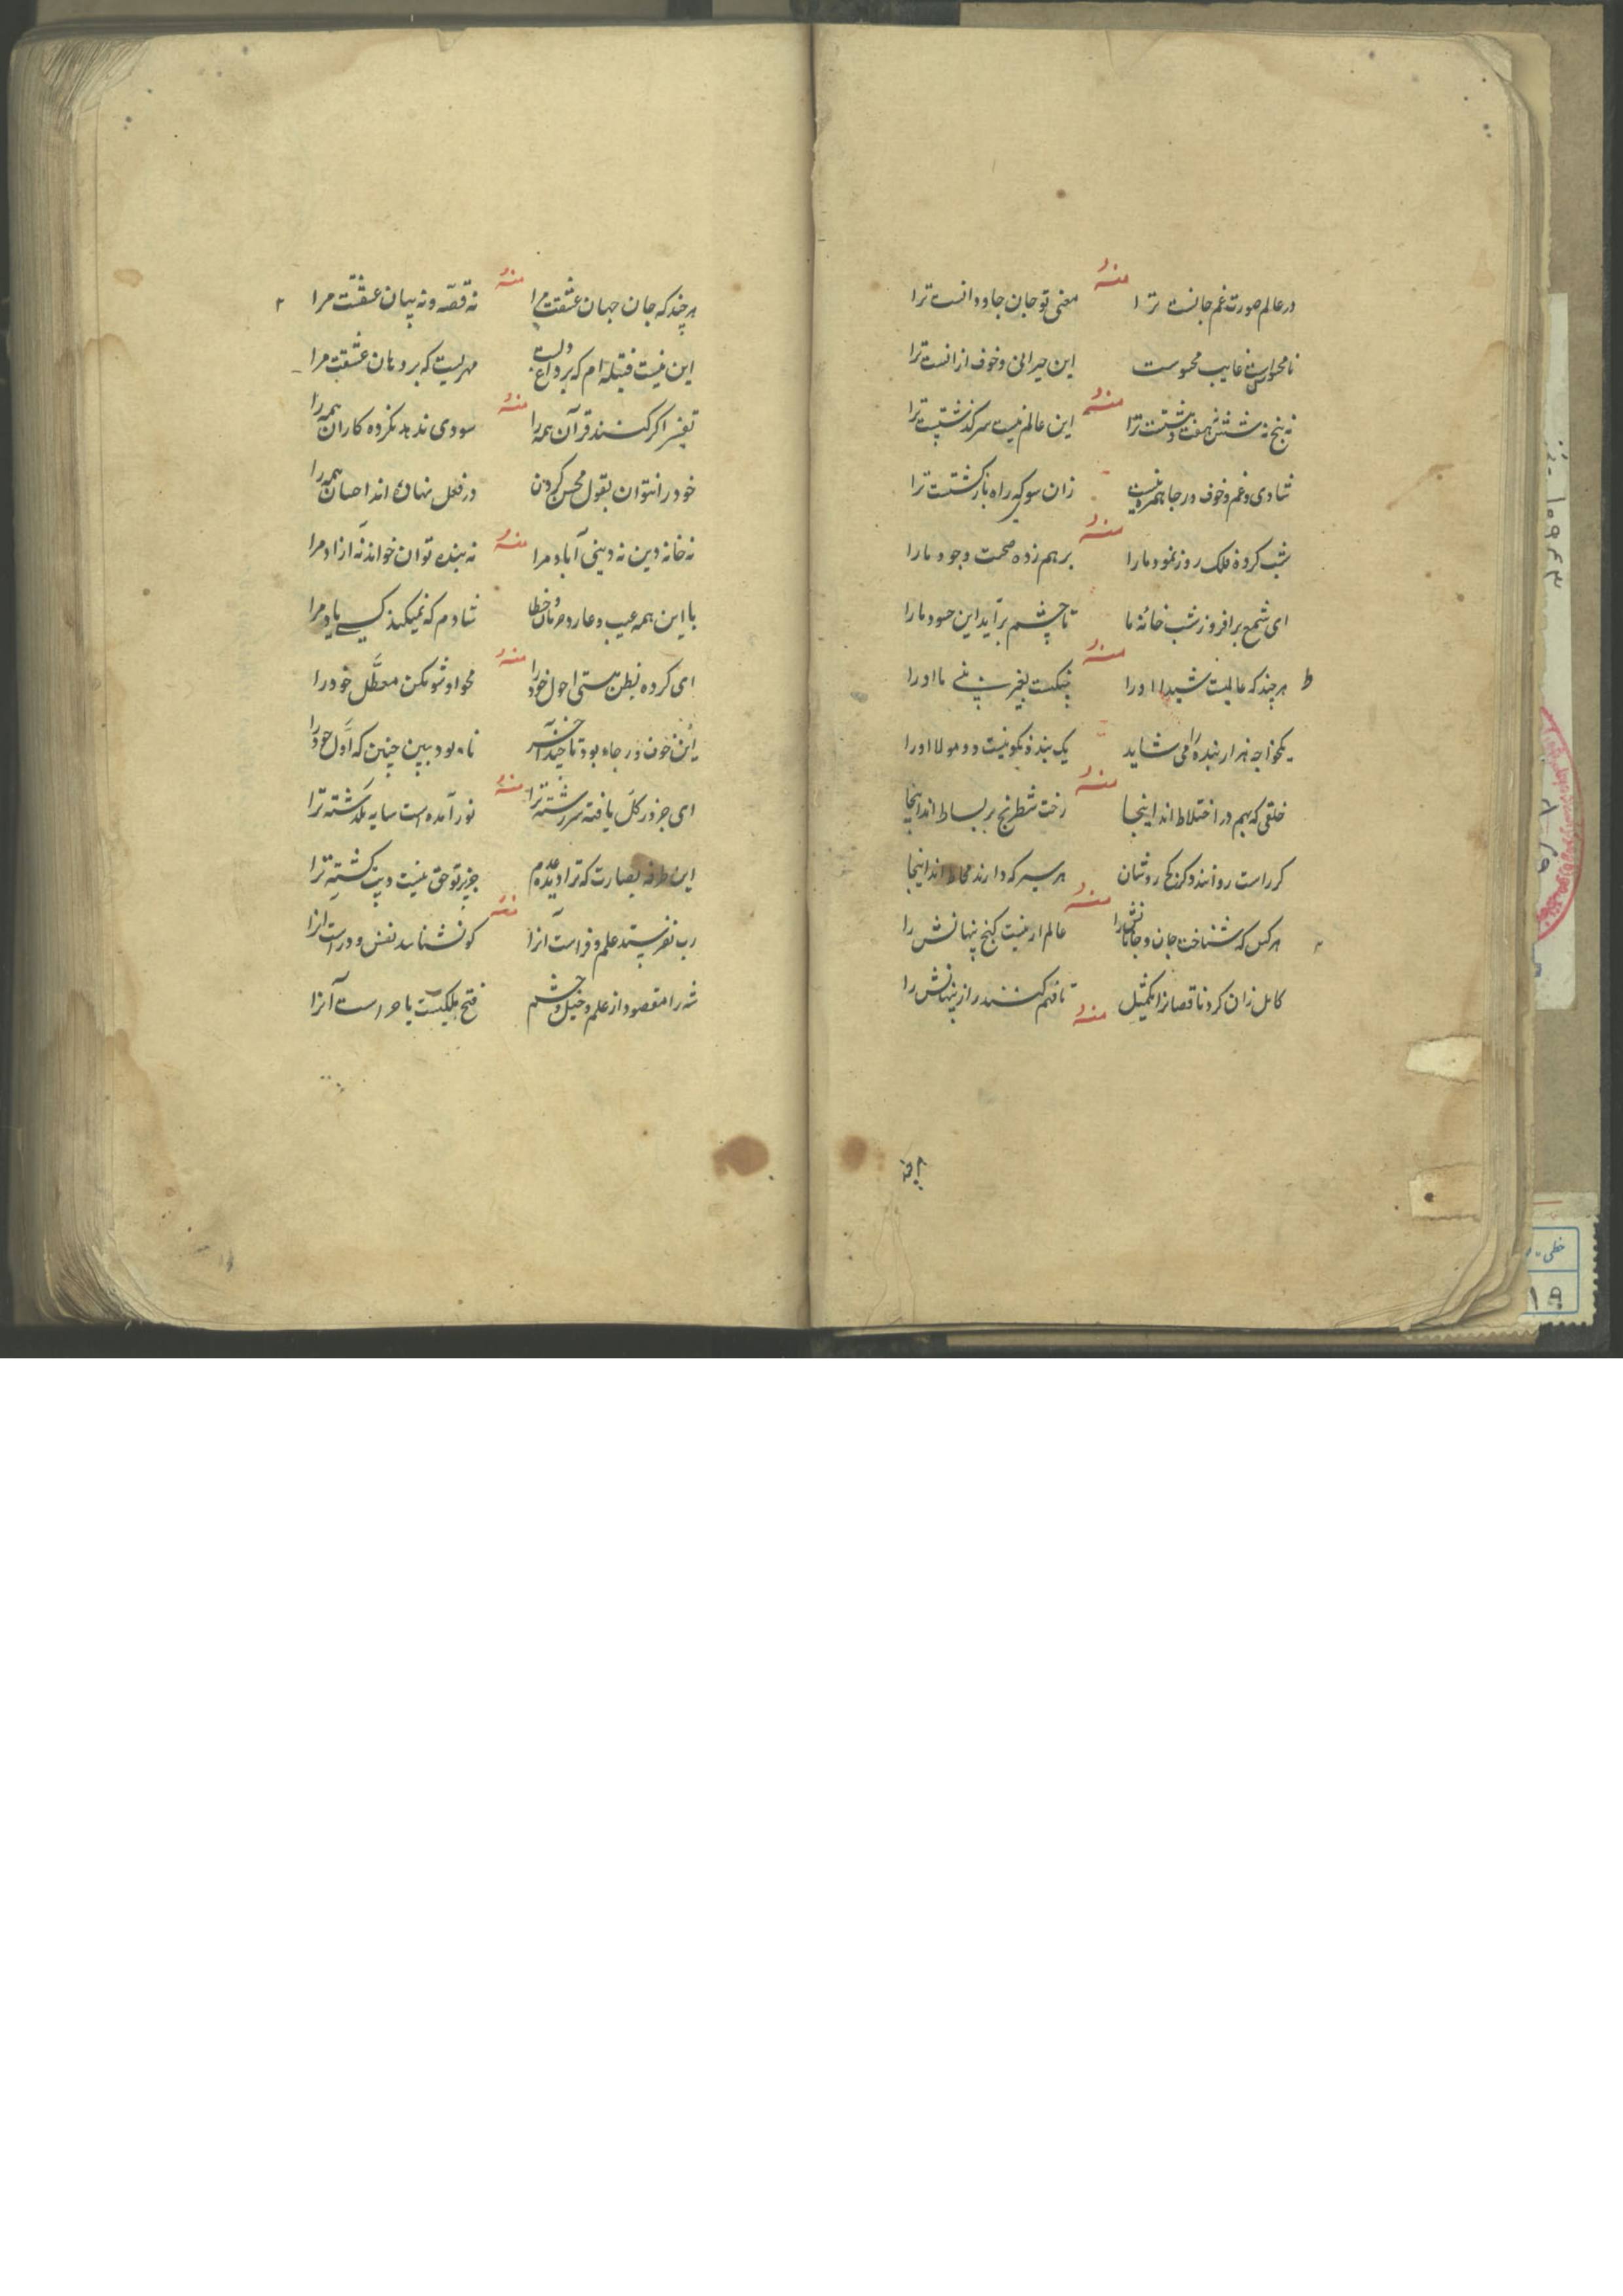 منه
در عالم صورت غم جانست ترا معنی تو جان جاودانست ترا
نامحسوس است غایب محسوست این حیرانی و خوف ازانست ترا
منه
نه پنج نه شش نه هفت و هشتست ترا این عالم نیست سرگذشتست ترا
شادی و غم و خوف و رجا همره نیست زان سو که راه بازگشتست ترا
منه
شب کرده فلک روز نمود ما را برهم زده صحبت وجود ما را
ای شمع برافروز شب خانهٔ ما تا چشم برآید این حسود ما را
منه
هرچند که عالمیست شیدا او را یکیست بغیر ما او را
یکخواجه هزار بنده را می شاید یک بنده نکو نیست دو مولا او را
منه
خلقی که بهم در اختلاط اند اینجا رخت شطرنج بر بساط اند اینجا
کر راست روانند و کر کج روشان هر سیر که دارند محاط اند اینجا
منه
هر کس که شناخت جان و جانانش را عالم ارنیست کنج پنهانش را
کامل زان کرد ناقصانرا تکمیل تا فهم کنند راز پنهانش را
منه
منه
هرچند که جان جهان عشقست مرا نه قصه و نه بیان عشقست مرا
این نیست فتیله ام که بر داغ دلست مهریست که بر دهان عشقست مرا
منه
تفسیر اگر کنند قرآن همه را سودی ندهد نکرده کاران همه را
خود را نتوان بقول محسن کردن در فعل نهاده اند احسان همه را
منه
نه خانه دین نه دینی آباد مرا نه بنده توان خواند نه آزاد مرا
با این همه عیب و عار و نقصان و خطا شادم که نمیکند کسی یاد مرا
منه
ای کرده بطن هستی احول خود را محو او شو مکن معطل خود را
این خوف و رجاء بود تا چند آخر نابود ببین چنین که اول خود را
منه
ای جزو ز کل یافته سررشته ترا نور آمده است سایه بگذشته ترا
این طرفه بصارت که ترا دیده عدم جز پرتو حق نیست و پیت کشته ترا
منه
رب نفرستد علم و فراست آنرا کو نشناسد نفس و دراست آنرا
شه را مقصود از علم و خیل و حشم فتح ملکیست یا حراست آنرا